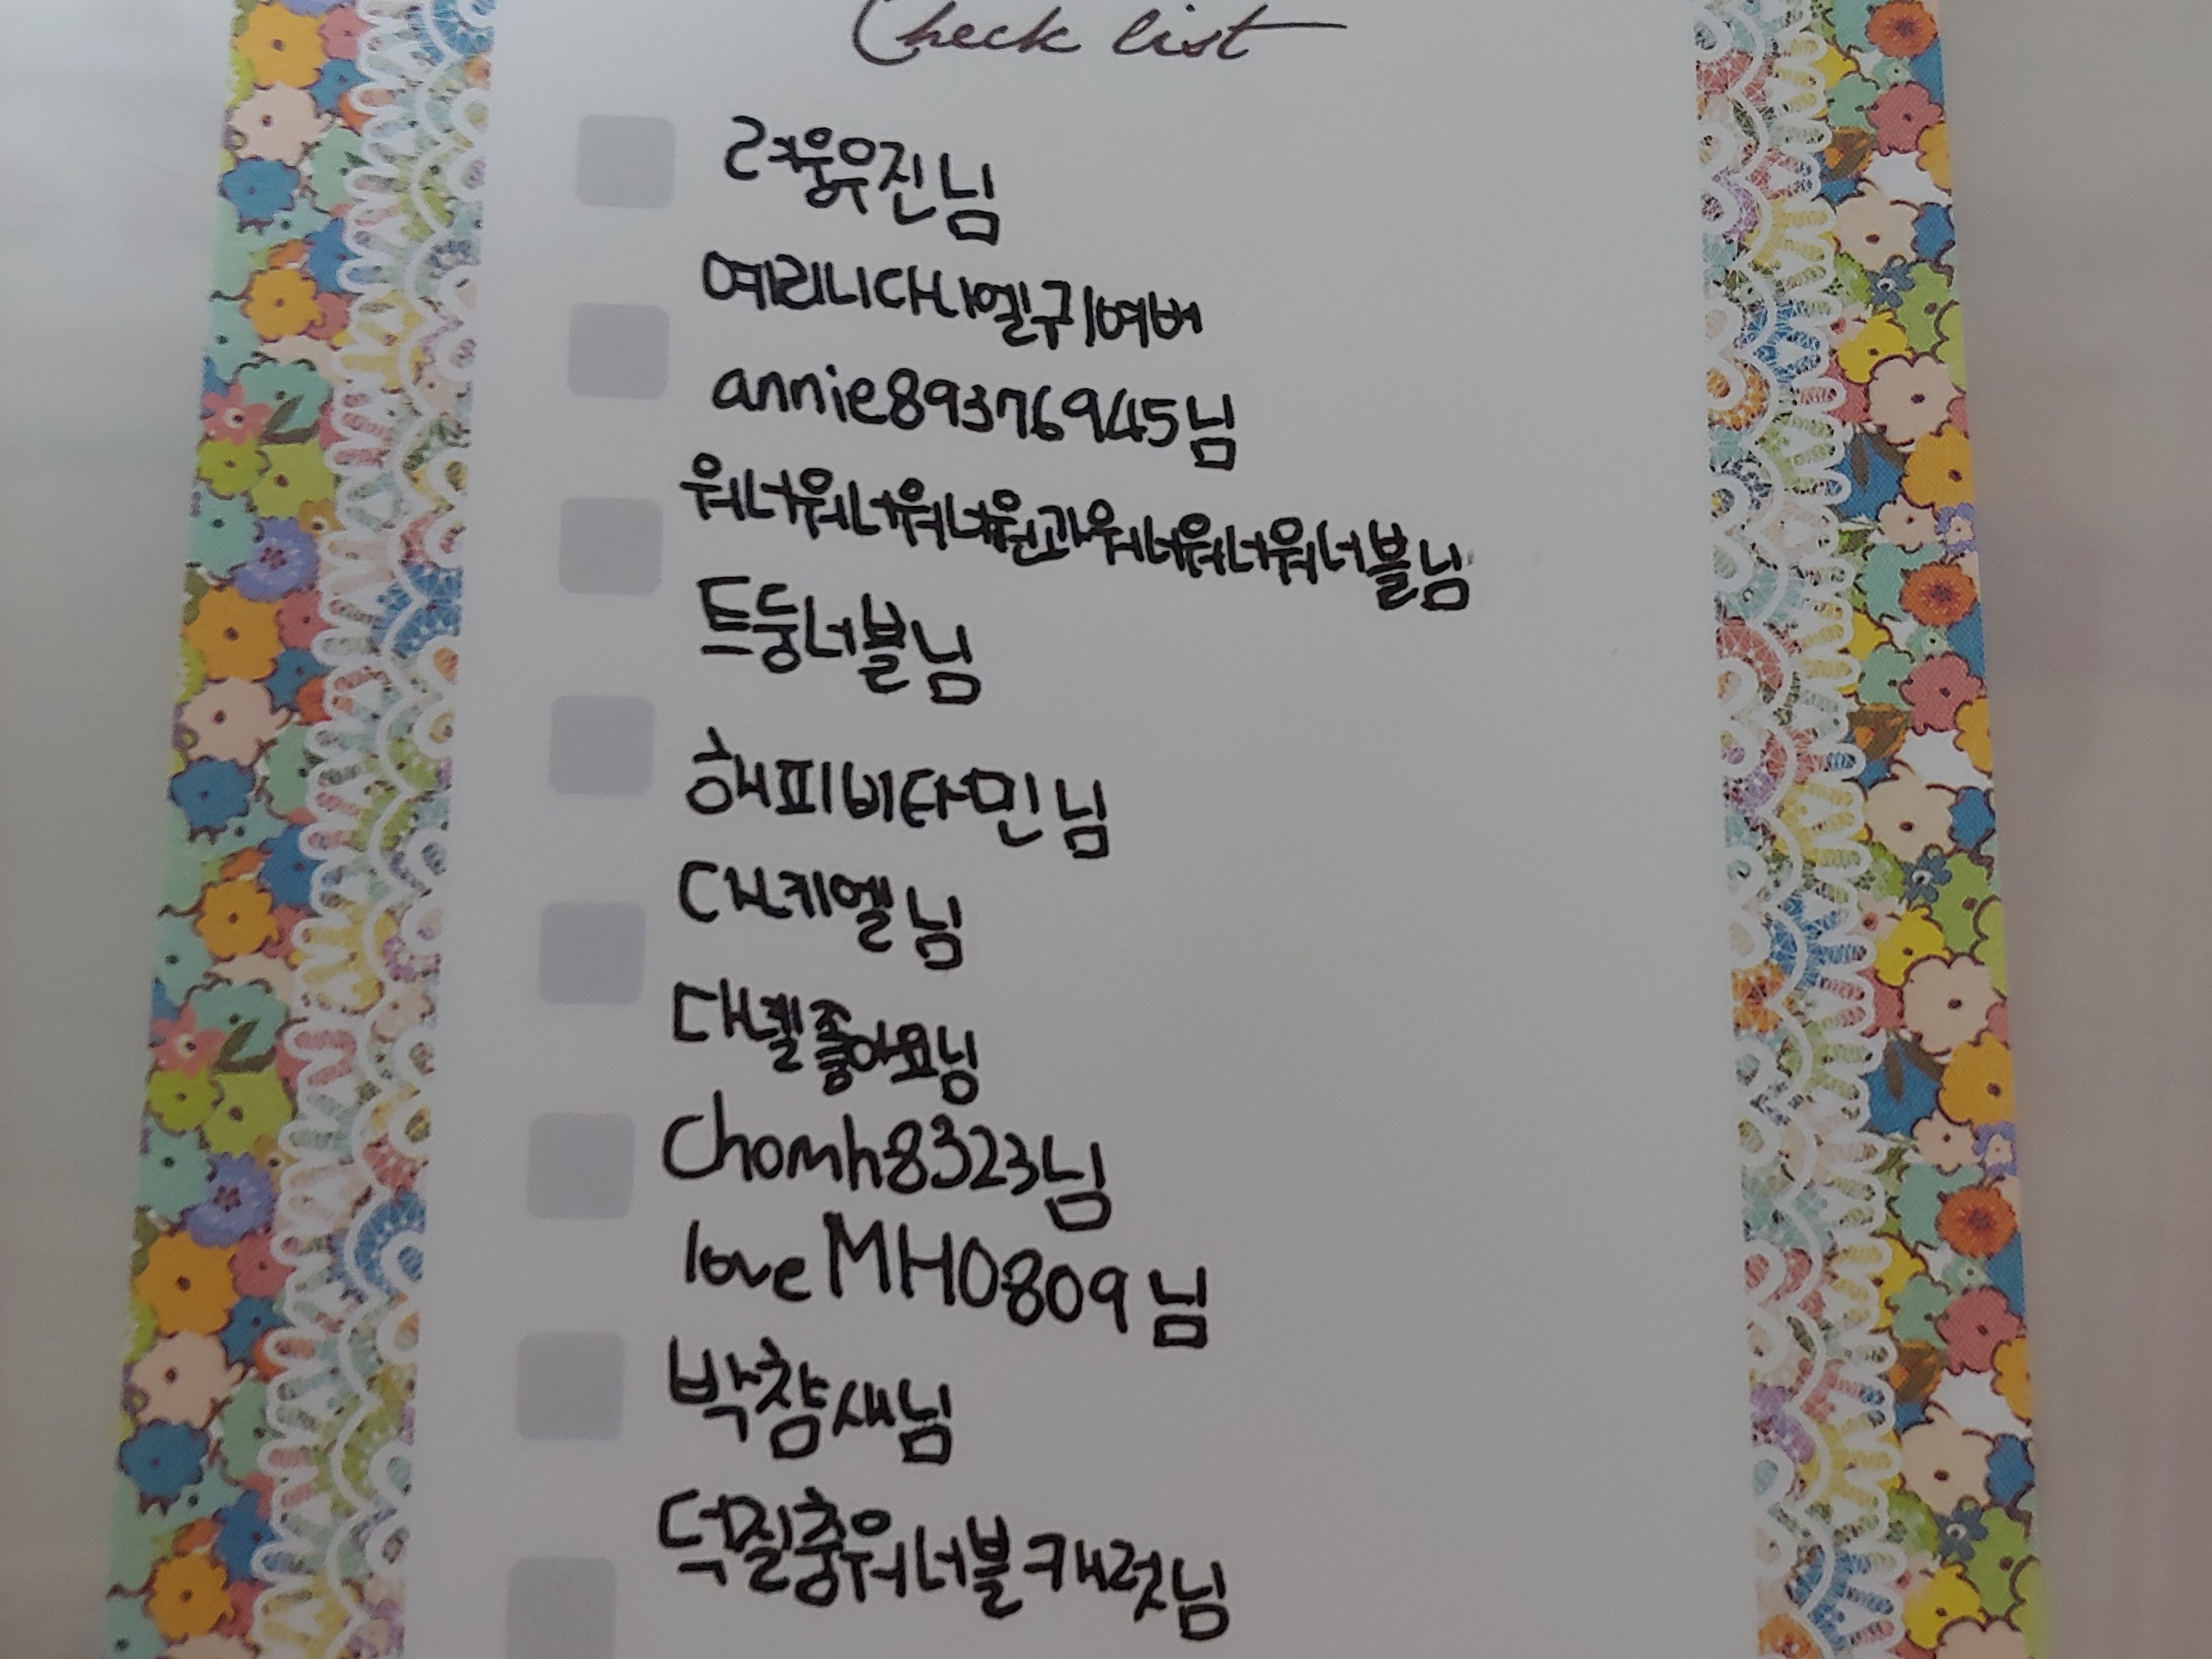 Check list
러웅유진님
예리니다니엘귀여버
annie89376945님
워너워너워너원과워너워너워너블님
트둥너블님
해피비타민님
대케엘님
댜녤좋아요닝
Chomh8323님
loveMH0809님
박챰새님
덕질중워너블캐럿님